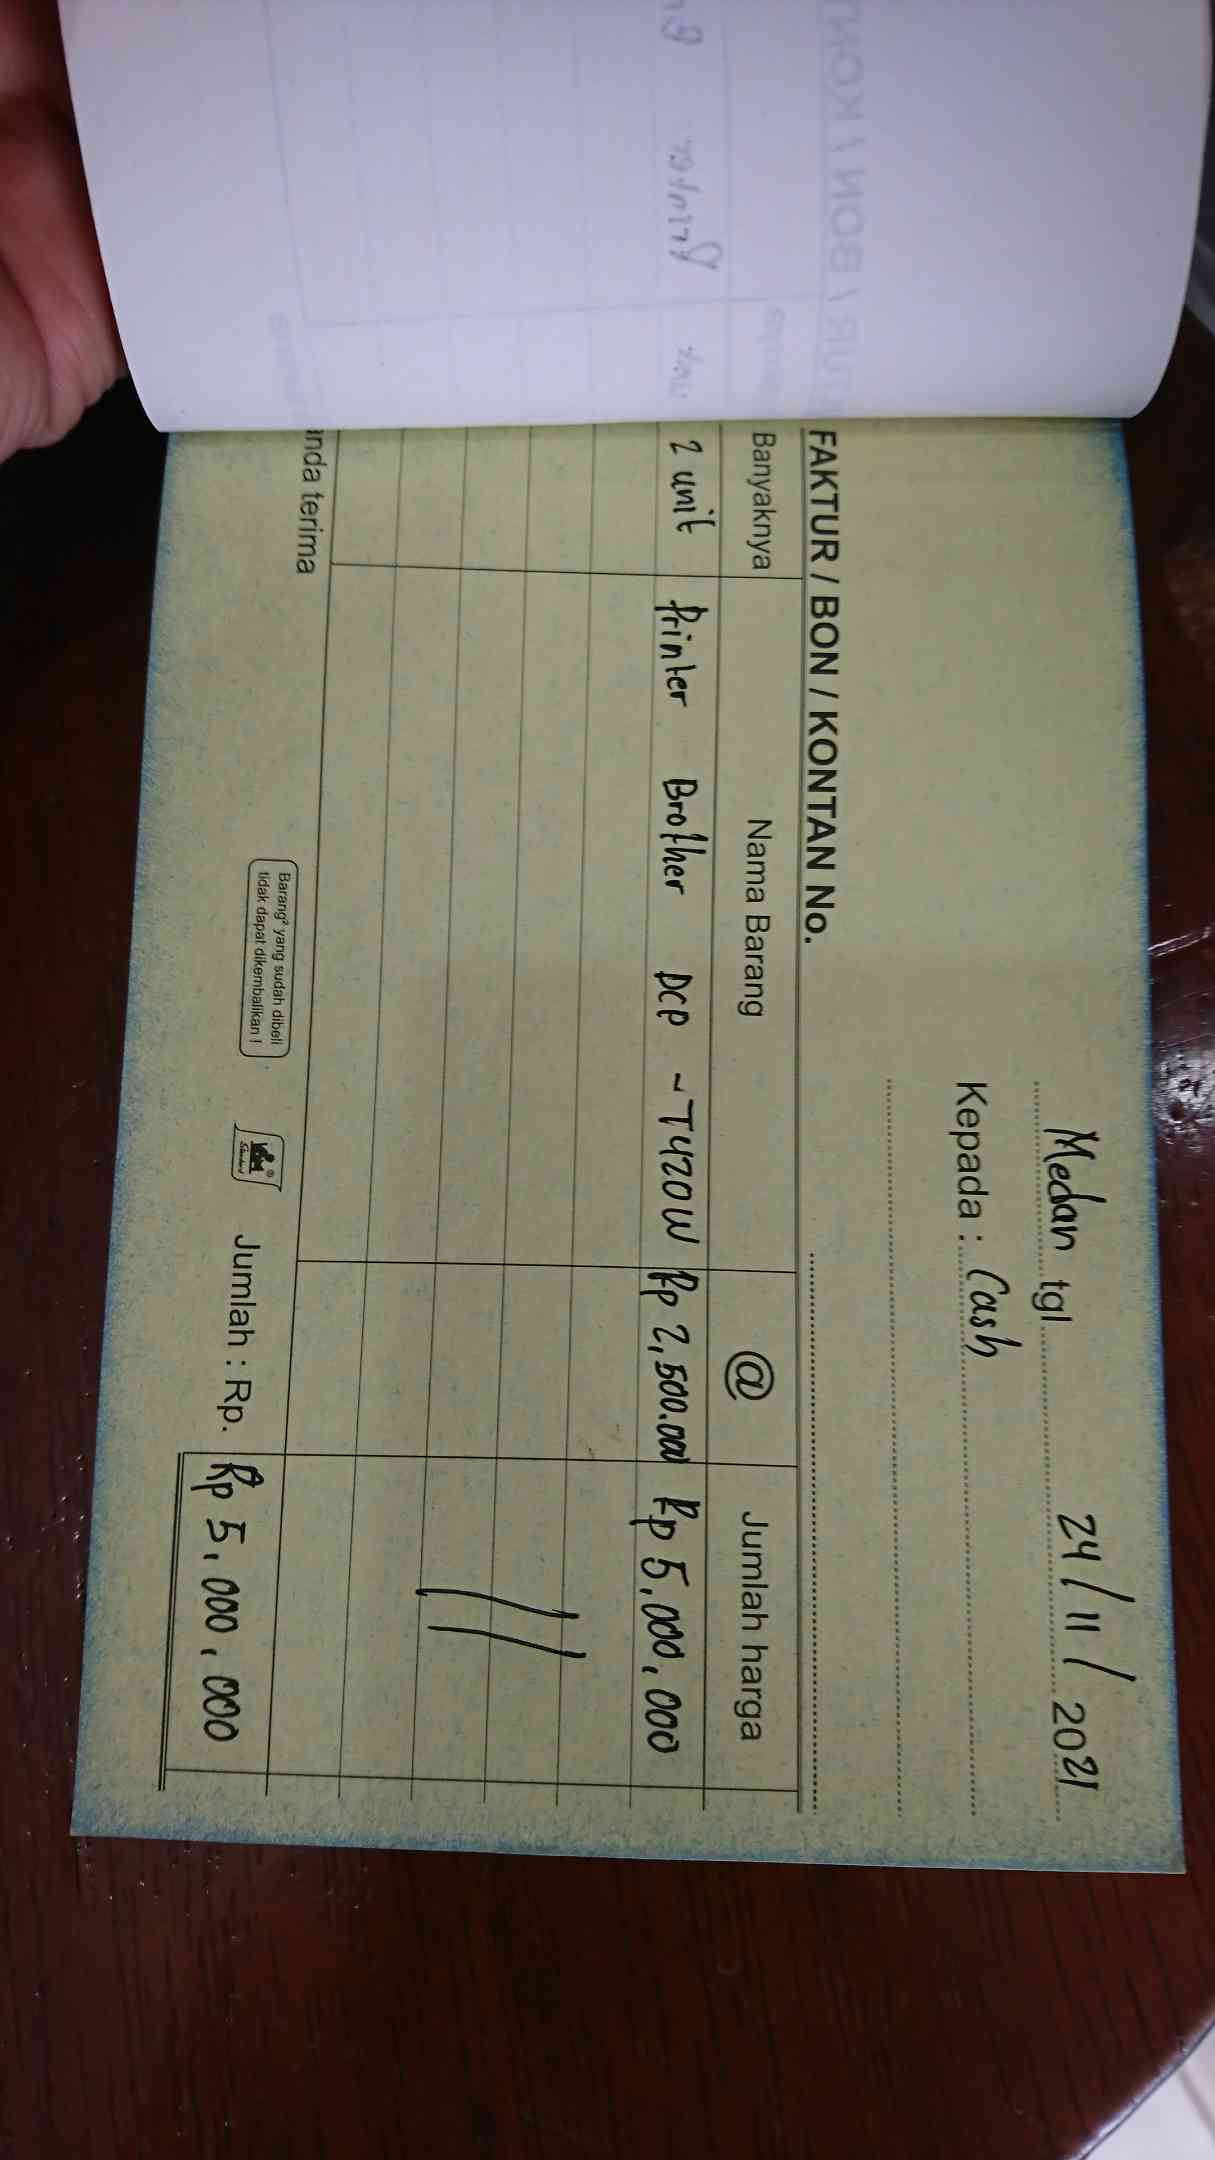 Medan tgl 24/11/2021
Kepada : Cash
FAKTUR / BON / KONTAN No.
Banyaknya Nama Barang @ Jumlah harga
2 unit Printer Brother DCP - T420W Rp 2,500.000 Rp 5.000.000
anda terima
Barang² yang sudah dibeli
tidak dapat dikembalikan !
Jumlah : Rp. Rp 5.000.000